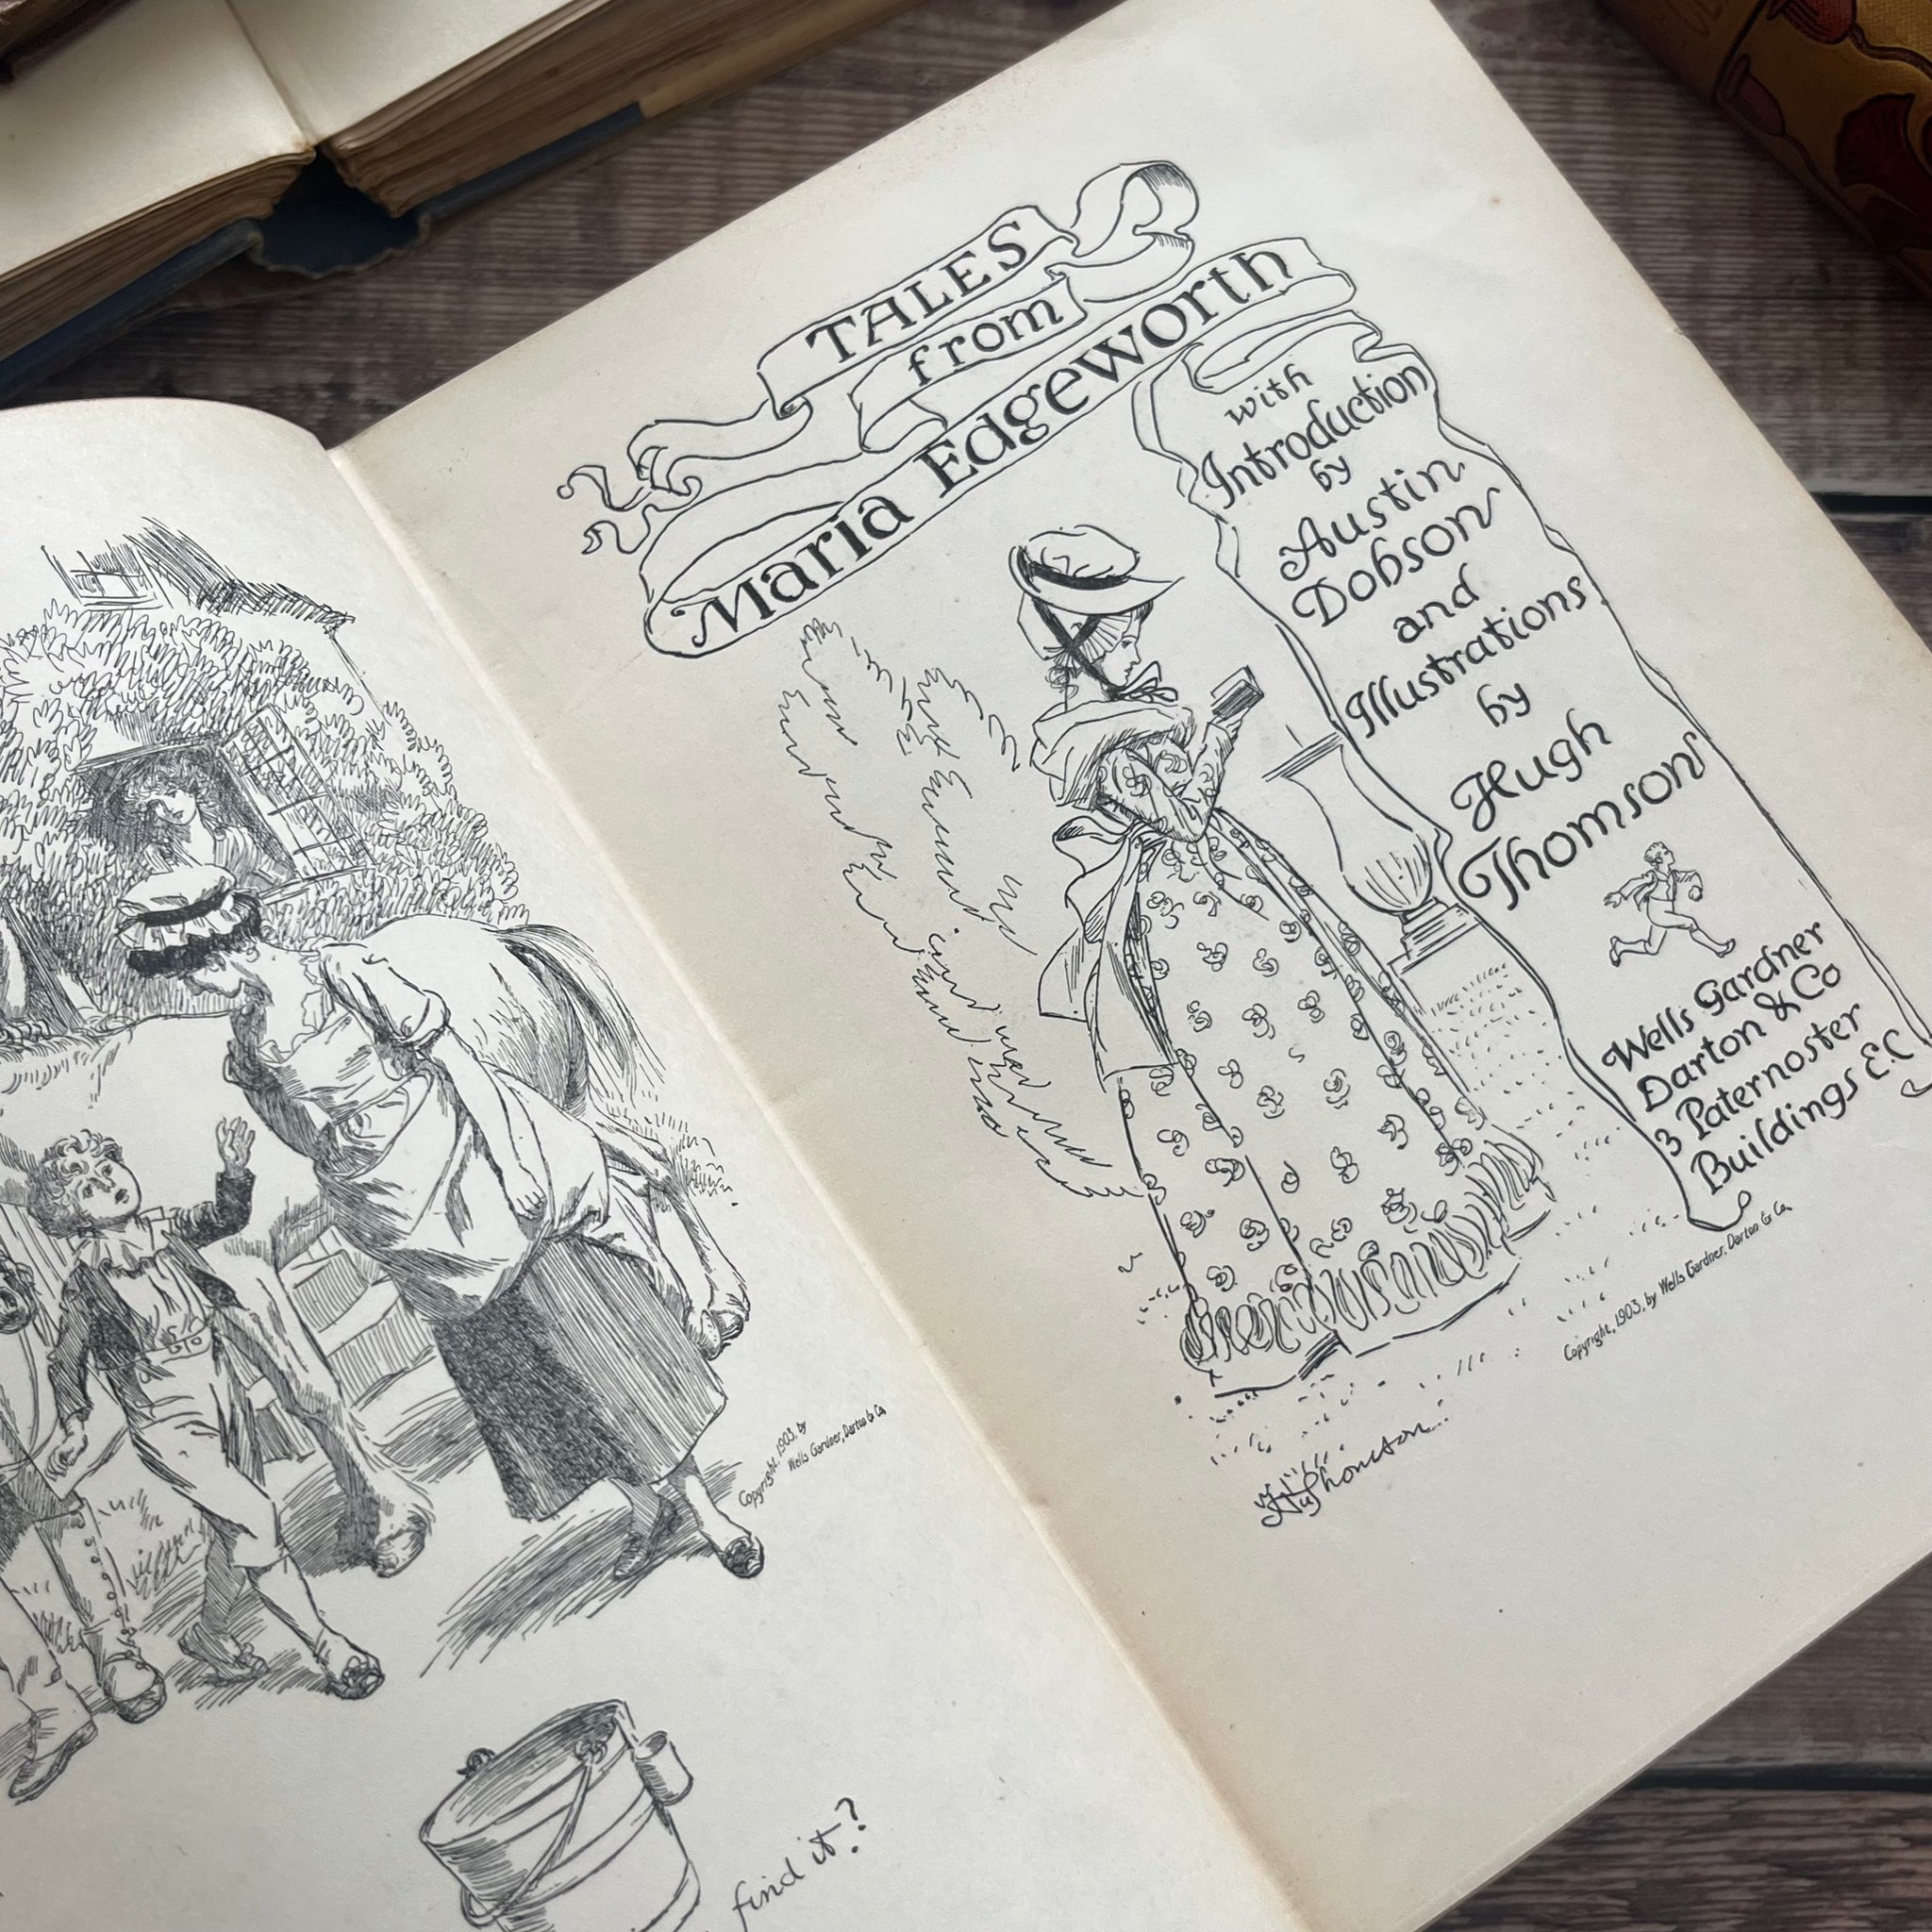 find it?
Copyright, 1903, by
Wells Gardner, Darton & Co.
TALES
from
Maria Edgeworth
with
Introduction
by
Austin
Dobson
and
Illustrations
by
Hugh
Thomson
Wells Gardner
Darton & Co
3 Paternoster
Buildings E.C
Copyright, 1903, by Wells Gardner, Darton & Co.
Hugh Thomson